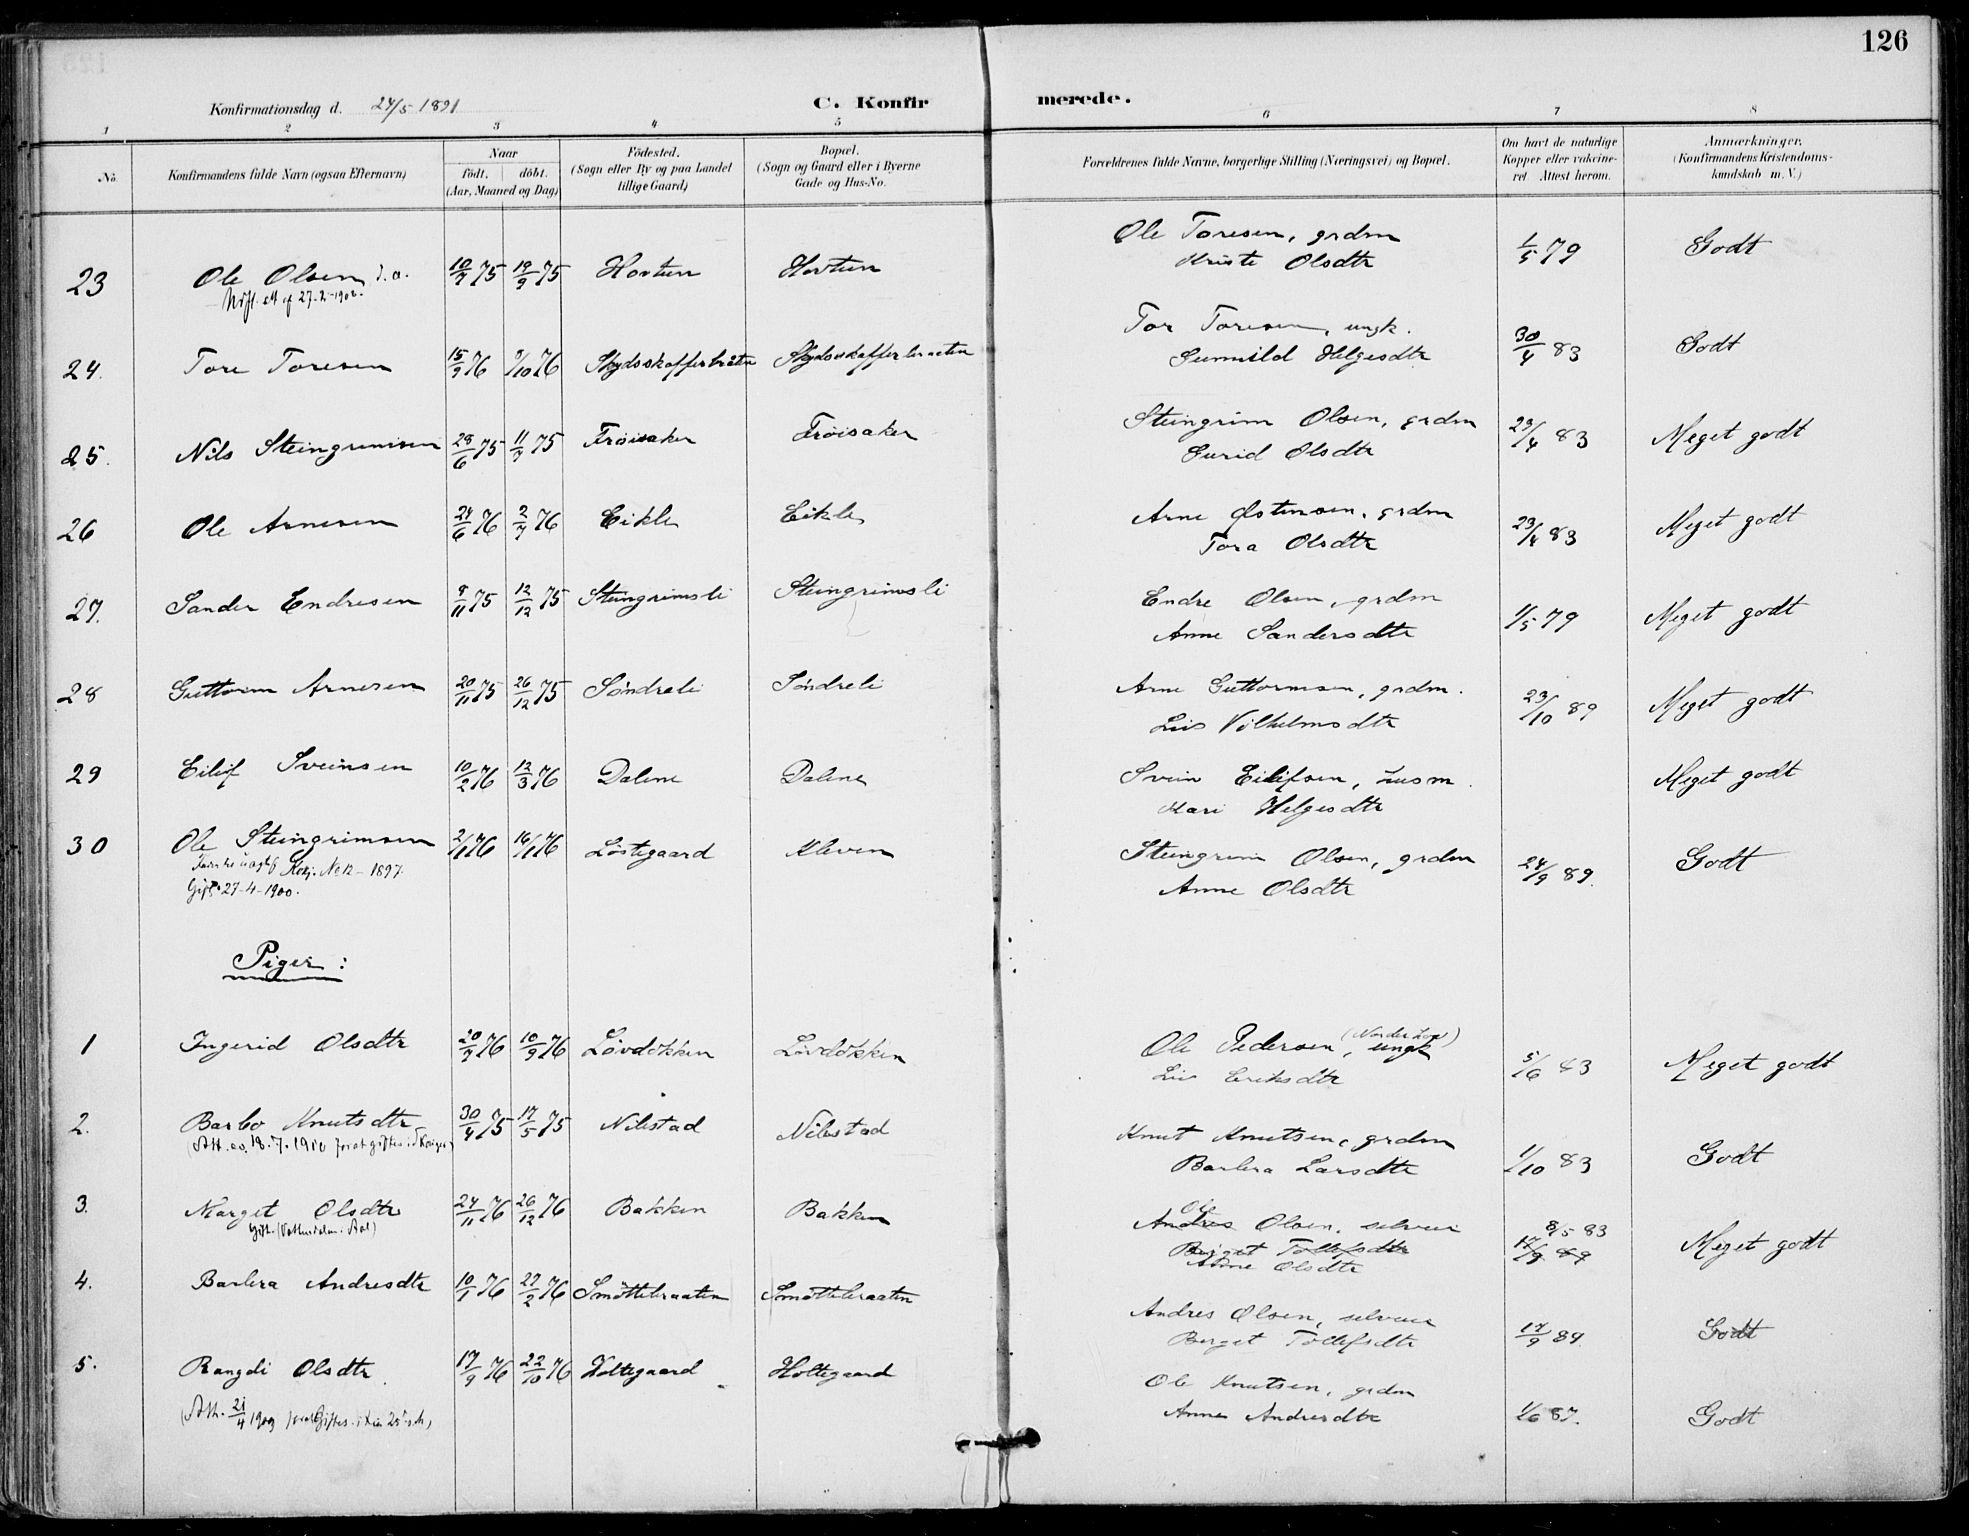 126
Konfirmationsdag d. 24/5 1891 C. Konfirmerede.
1 2 3 4 5 6 7 8
No. Konfirmandens fulde Navn (ogsaa Efternavn) Naar födt. döbt. (Aar, Maaned og Dag) Födested. (Sogn eller By og paa Landet tillige Gaard) Bopæl. (Sogn og Gaard eller i Byerne Gade og Hus-No. Forældrenes fulde Navne, borgerlige Stilling (Næringsvei) og Bopæl. Om havt de naturlige Kopper eller vakcineret Attest herom. Anmærkninger. (Konfirmandens Kristendomskundskab m. V.)
23 Ole Olsen d.a. 10/7 75 19/9 75 Hovtun Hovtun Ole Toresen, grdm 1/5 79 Godt
att af 27-2-1902. Kristi Olsdtr
24. Tore Toresen 15/9 76 /10 76 Skydsskafferbråten Skydsskafferbraaten Tor Toresen, ungk. 30/4 83 Godt
Gunnild Helgesdtr
25. Nils Steingrimsen 28/6 75 11/7 75 Frøisaker Frøisaker Steingrim Olsen, grdm 23/4 83 Meget godt
Gurid Olsdtr
26 Ole Arnesen 24/6 76 2/7 76 Eikle Eikle Arne Østensen, grdm 23/4 83 Meget godt
Tora Olsdtr
27. Sander Endresen 9/11 75 12/12 75 Steingrimsli Steingrimsli Endre Olsen, grdm 1/5 79 Meget godt
Anne Sandersdtr
28 Guttorm Arnesen 20/11 75 26/12 75 Søndreli Søndreli Arne Guttormsen, grdm. 23/10 89 Meget godt
Liv Vilhelmsdtr
29 Eilif Sveinsen 10/2 76 12/3 76 Dalene Dalene Svein Eilifsen, husm. Meget godt
Kari Helgesdtr
30 Ole Steingrimsen 2/1 76 16/1 76 Løstegaard Kleven Steingrim Olsen, grdm 24/9 89. Godt
No 12 - 1897. Anne Olsdtr
Gift 27-4-1900.
Piger:
1 Ingerid Olsdtr 20/7 76 10/9 76 Løvdokken Løvdokken Ole Pedersen, (Norderhov) ungk 5/6 83 Meget godt
Liv Eriksdtr
2. Barbo Knutsdtr 30/4 75 17/5 75 Nilsstad Nilsstad Knut Knutsen, grdm 1/10 83 Godt
(Att. 18.7.1910 for at giftes i ) Barbra Larsdtr
3. Marget Olsdtr 24/11 76 26/12 76 Bakken Bakken Ole Andres Olsen, selveier 8/5 83 17/9 89 Meget godt
Gift. Birget Tollefsdtr
Anne Olsdtr
4. Barbra Andresdtr 10/1 76 27/2 76 Smøttebraaten Smøttebraaten Andres Olsen, selveier 17/9 89. Godt
Berget Tollefsdtr
5. Rangdi Olsdtr. 17/9 76 22/10 76 Holtegaard Holtegaard Ole Knutsen, grdm 1/6 87. Godt
(Att. 21/4 1909 for at Giftes i ) Anne Andresdtr